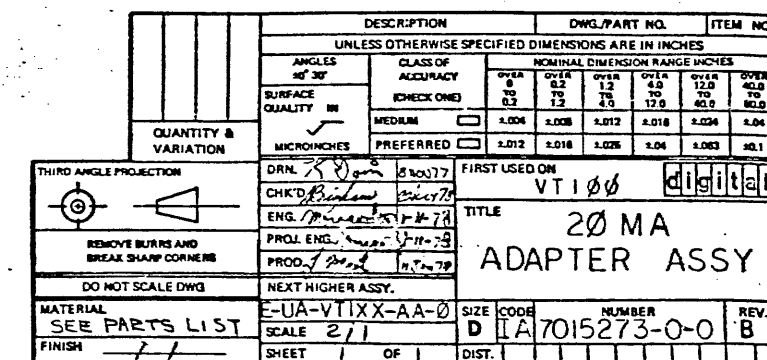 DESCRIPTION DWG./PART NO. ITEM NO
UNLESS OTHERWISE SPECIFIED DIMENSIONS ARE IN INCHES
ANGLES ±0° 30'
CLASS OF ACCURACY (CHECK ONE)
NOMINAL DIMENSION RANGE INCHES
OVER 0 TO 0.2
OVER 0.2 TO 1.2
OVER 1.2 TO 4.0
OVER 4.0 TO 12.0
OVER 12.0 TO 40.0
OVER 40.0 TO 80.0
SURFACE QUALITY IN
MICROINCHES
MEDIUM ±.004 ±.008 ±.012 ±.016 ±.024 ±.04
PREFERRED ±.012 ±.016 ±.025 ±.04 ±.063 ±0.1
QUANTITY & VARIATION
THIRD ANGLE PROJECTION
REMOVE BURRS AND
BREAK SHARP CORNERS
DO NOT SCALE DWG
MATERIAL
SEE PARTS LIST
FINISH
DRN. 8 NOV 77
CHK'D
ENG.
PROJ. ENG.
PROD.
NEXT HIGHER ASSY.
E-UA-VT1XX-AA-0
SCALE 2/1
SHEET 1 OF 1
FIRST USED ON
VT100
digital
TITLE
20 MA
ADAPTER ASSY
SIZE CODE NUMBER REV.
D IA 7015273-0-0 B
DIST.